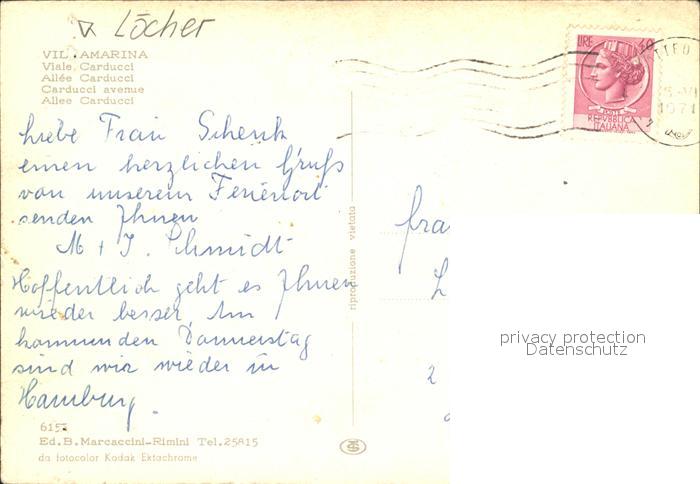 Löcher
VILLAMARINA
Viale Carducci
Allée Carducci
Carducci avenue
Allee Carducci
LIRE 40
POSTE
REPVBBLICA
ITALIANA
1971
Liebe Frau Schenk
einen herzlichen Gruß
von unserem Ferienort
senden Ihnen
M + J. Schmidt
Hoffentlich geht es Ihnen
wieder besser. Am
kommenden Donnerstag
sind wir wieder in
Hamburg.
riproduzione vietata
Fra
L
2
privacy protection
Datenschutz
615
Ed.B.Marcaccini-Rimini Tel.25815
da fotocolor Kodak Ektachrome